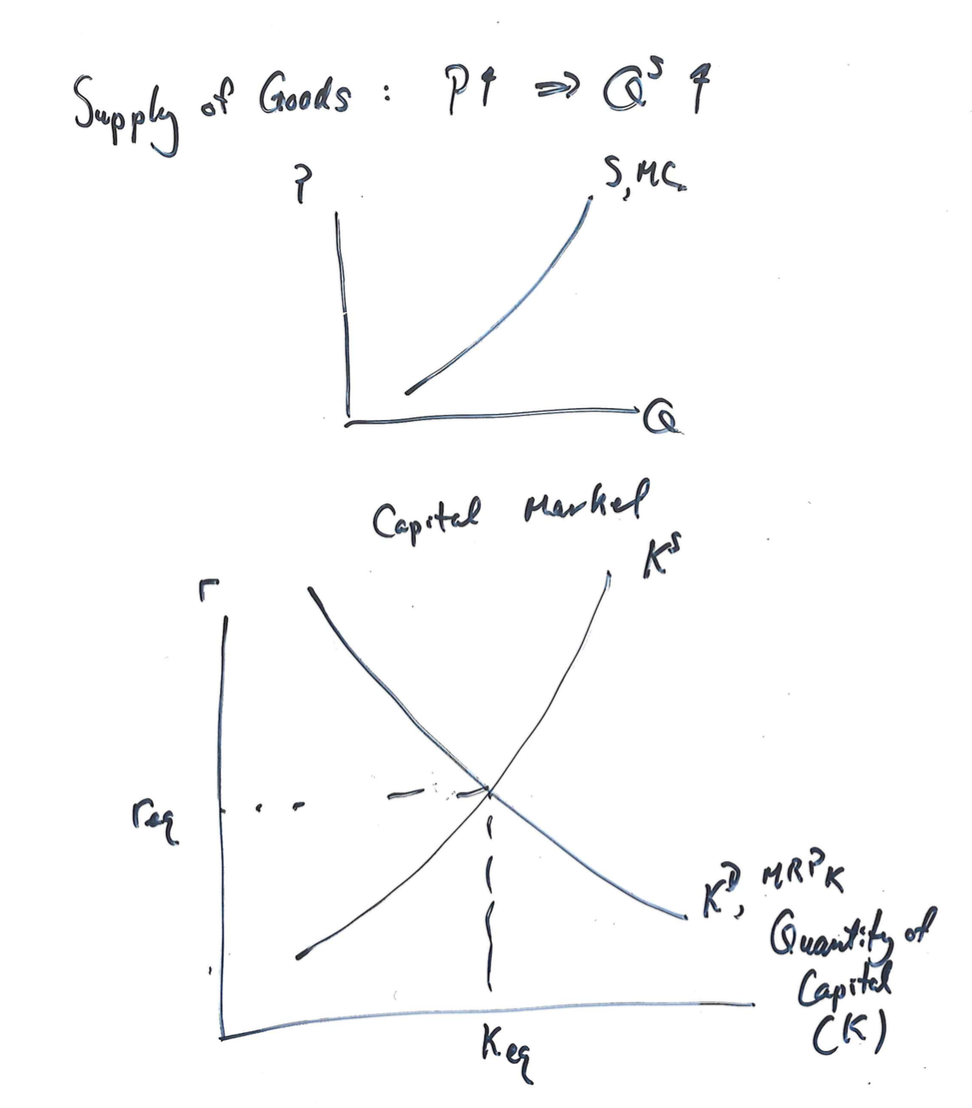 Supply of Goods : P↑ ⇒ Qˢ ↑
P
S, MC
Q
Capital Market
Kˢ
r
req
Kᴰ, MRPK
Quantity of
Capital
(K)
Keq